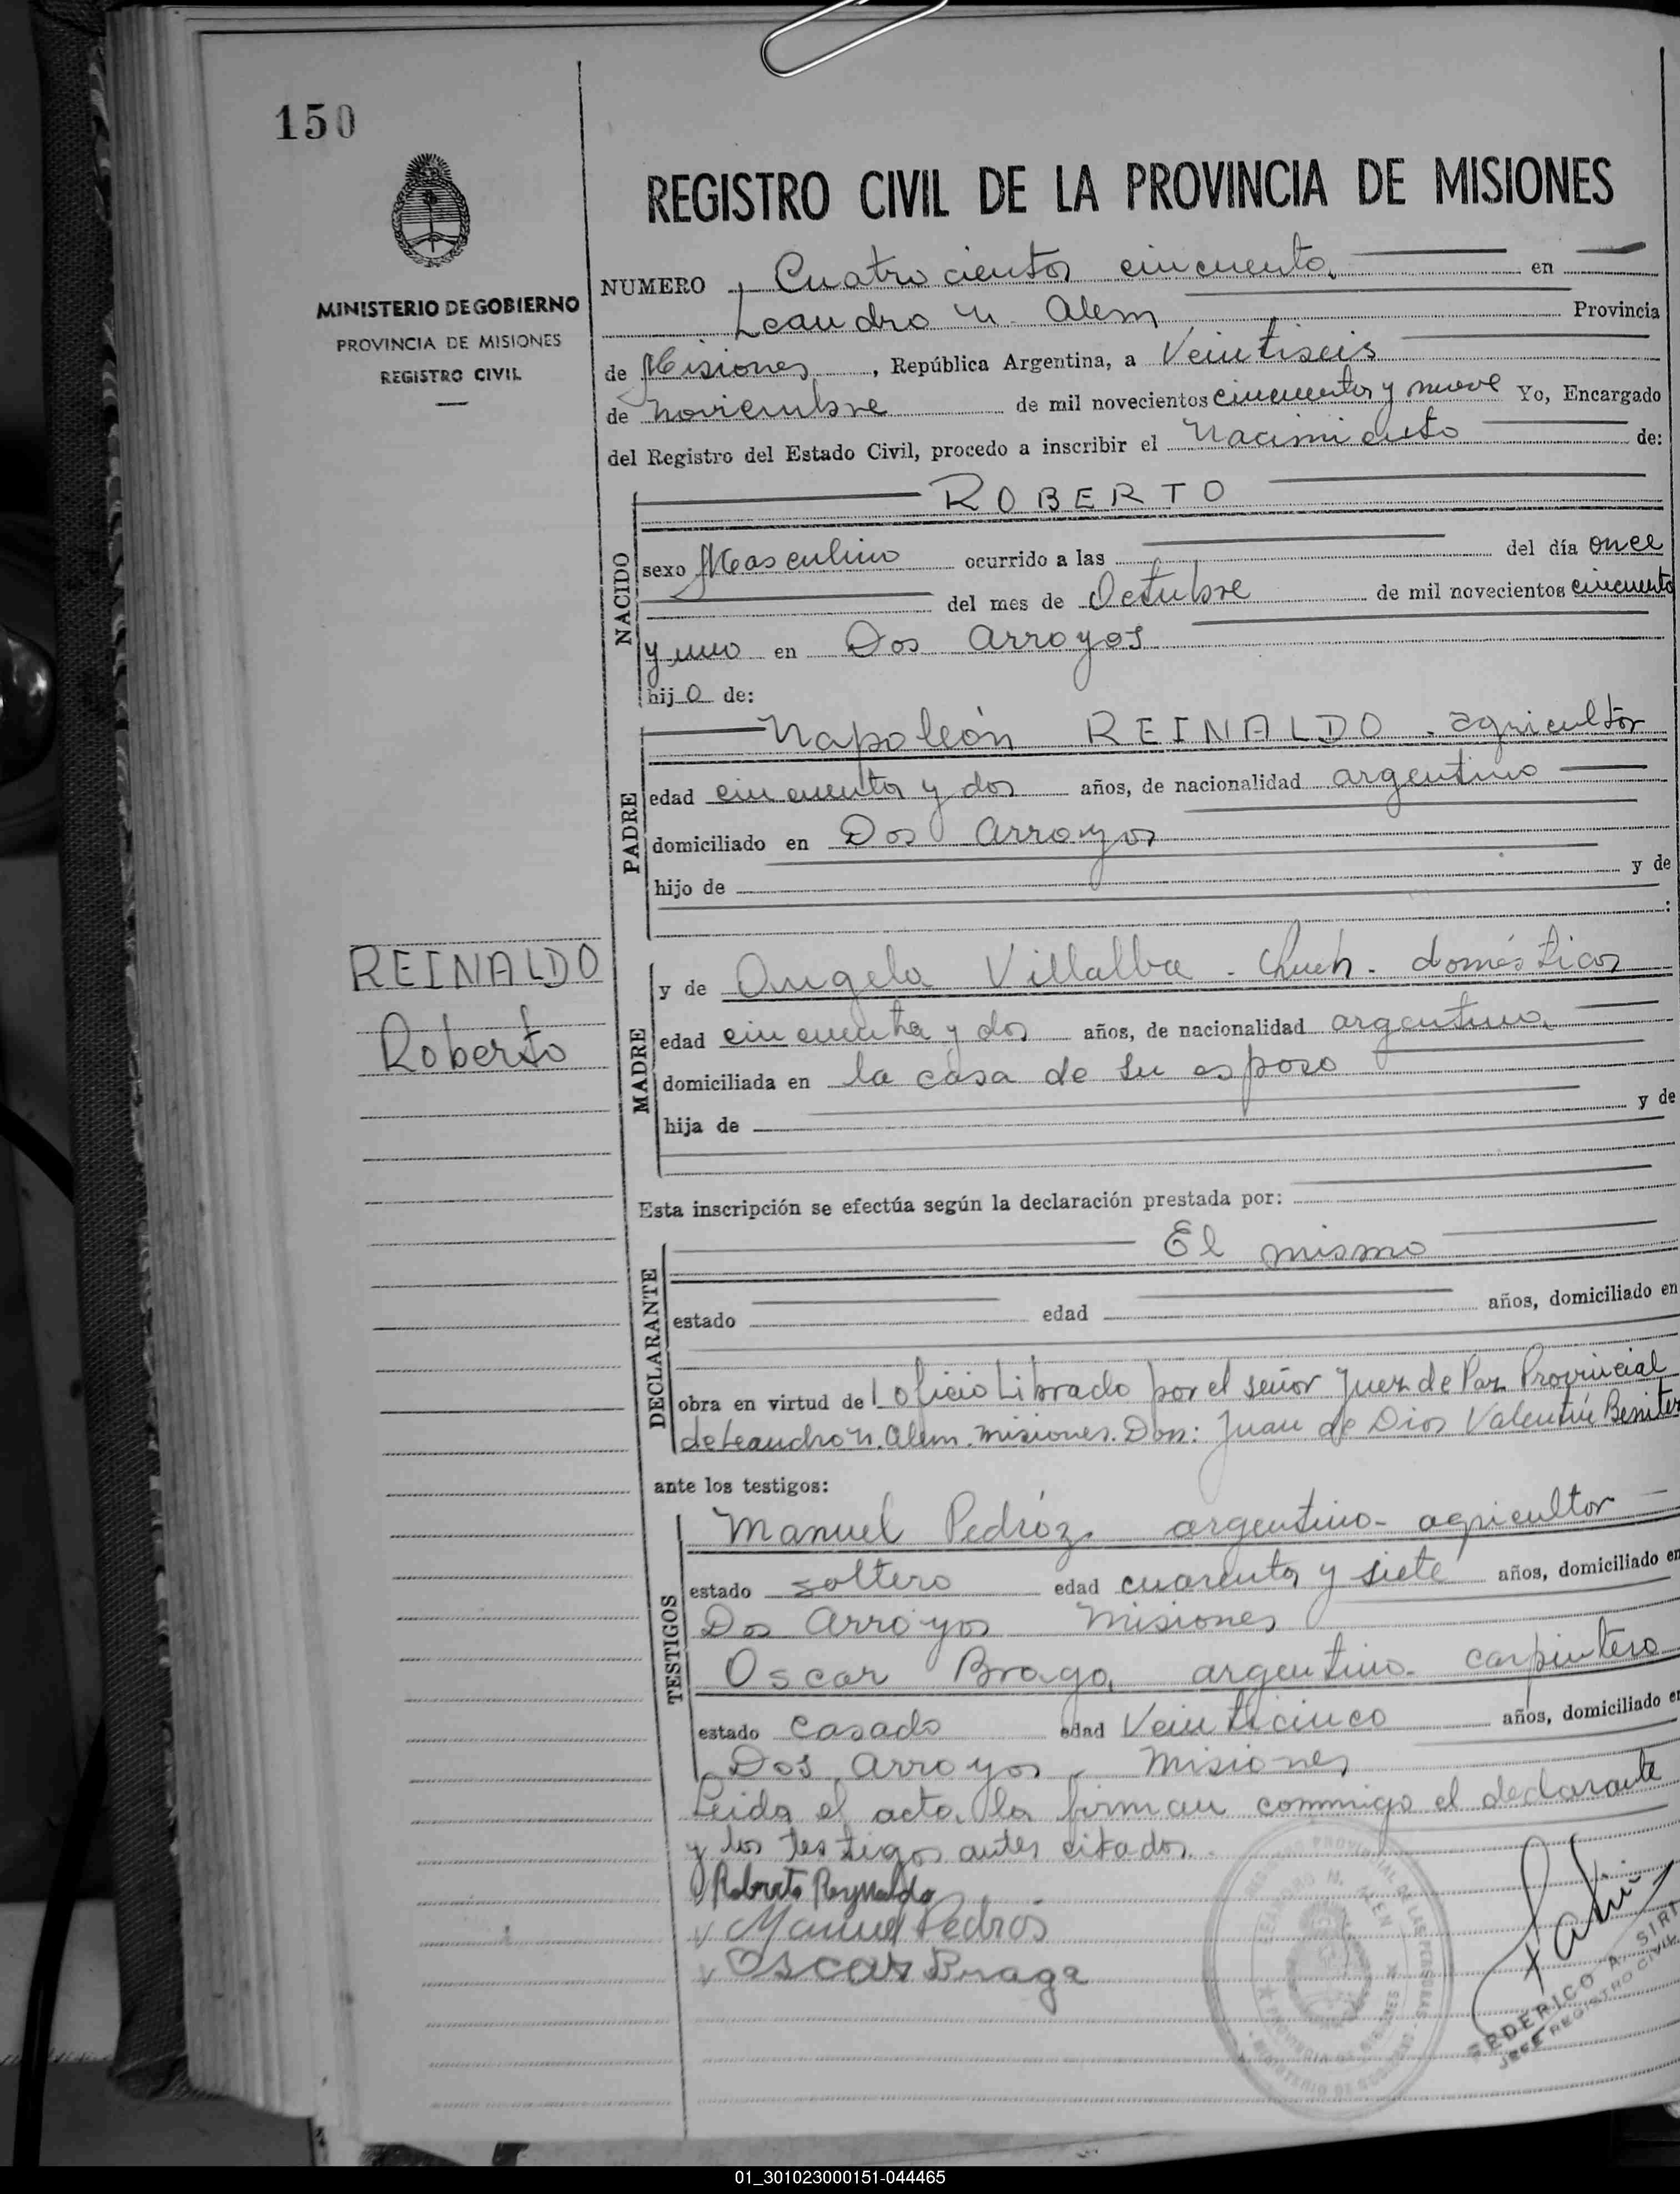 150
MINISTERIO DE GOBIERNO
PROVINCIA DE MISIONES
REGISTRO CIVIL
REGISTRO CIVIL DE LA PROVINCIA DE MISIONES
NUMERO Cuatrocientos cincuenta. en
Leandro N. Alem Provincia
de Misiones, República Argentina, a Veintiseis
de noviembre de mil novecientos cincuenta y nueve Yo, Encargado
del Registro del Estado Civil, procedo a inscribir el Nacimiento de:
NACIDO
ROBERTO
sexo Masculino ocurrido a las del día once
del mes de Octubre de mil novecientos cincuenta
y uno en Dos Arroyos
hijo de:
PADRE
Napoleón REINALDO. agricultor
edad cincuenta y dos años, de nacionalidad argentino
domiciliado en Dos Arroyos
hijo de y de
:
REINALDO
Roberto
MADRE
y de Angela Villalba - domésticos
edad cincuenta y dos años, de nacionalidad argentina
domiciliada en la casa de su esposo
hija de y de
Esta inscripción se efectúa según la declaración prestada por:
DECLARANTE
El mismo
estado edad años, domiciliado en
obra en virtud de l oficio Librado por el señor Juez de Paz Provincial
de Leandro N. Alem. Misiones. Don: Juan de Dios Valentín Benitez
ante los testigos:
TESTIGOS
Manuel Pedróz. argentino- agricultor
estado soltero edad cuarenta y siete años, domiciliado en
Dos Arroyos Misiones
Oscar Braga, argentino- carpintero
estado casado edad Veinticinco años, domiciliado en
Dos Arroyos - Misiones
Leida el acta, la firman conmigo el declarante
y los testigos antes citados.
Roberto Reynaldo
Manuel Pedros
Oscar Braga
FEDERICO A. SIRI
JEFE REGISTRO CIVIL
01_301023000151-044465